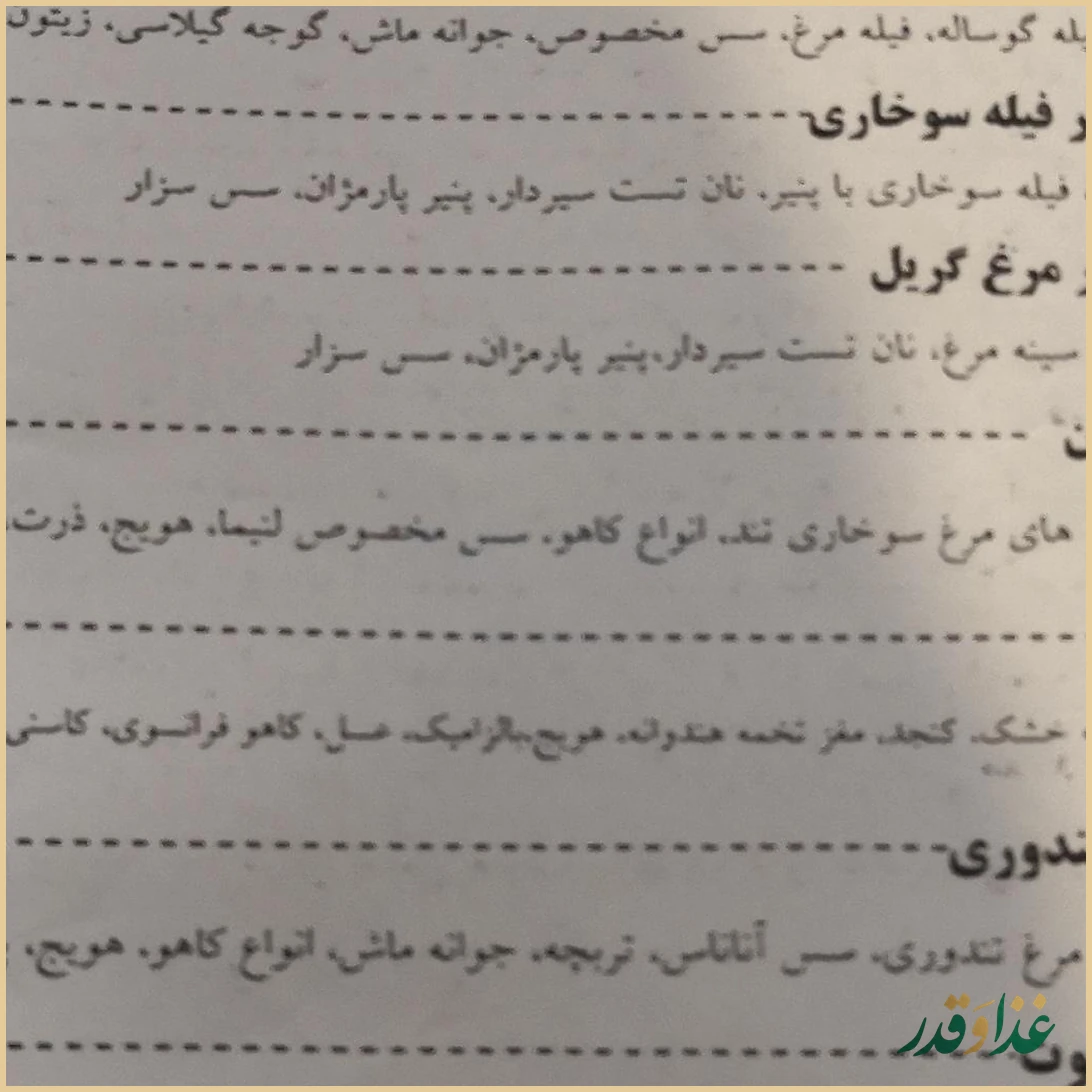 یله گوساله، فیله مرغ، سس مخصوص، جوانه ماش، گوجه گیلاسی، زیتون
ر فیله سوخاری
فیله سوخاری با پنیر، نان تست سیردار، پنیر پارمژان، سس سزار
ر مرغ گریل
سینه مرغ، نان تست سیردار،پنیر پارمژان، سس سزار
های مرغ سوخاری تند، انواع کاهو، سس مخصوص لنیما، هویج، ذرت،
خشک، کنجد، مغز تخمه هندوانه، هویج،بالزامیک، عسل، کاهو فرانسوی، کاسنی
ندوری
مرغ تندوری، سس آناناس، تربچه، جوانه ماش، انواع کاهو، هویج،
ون
غذا و قدر